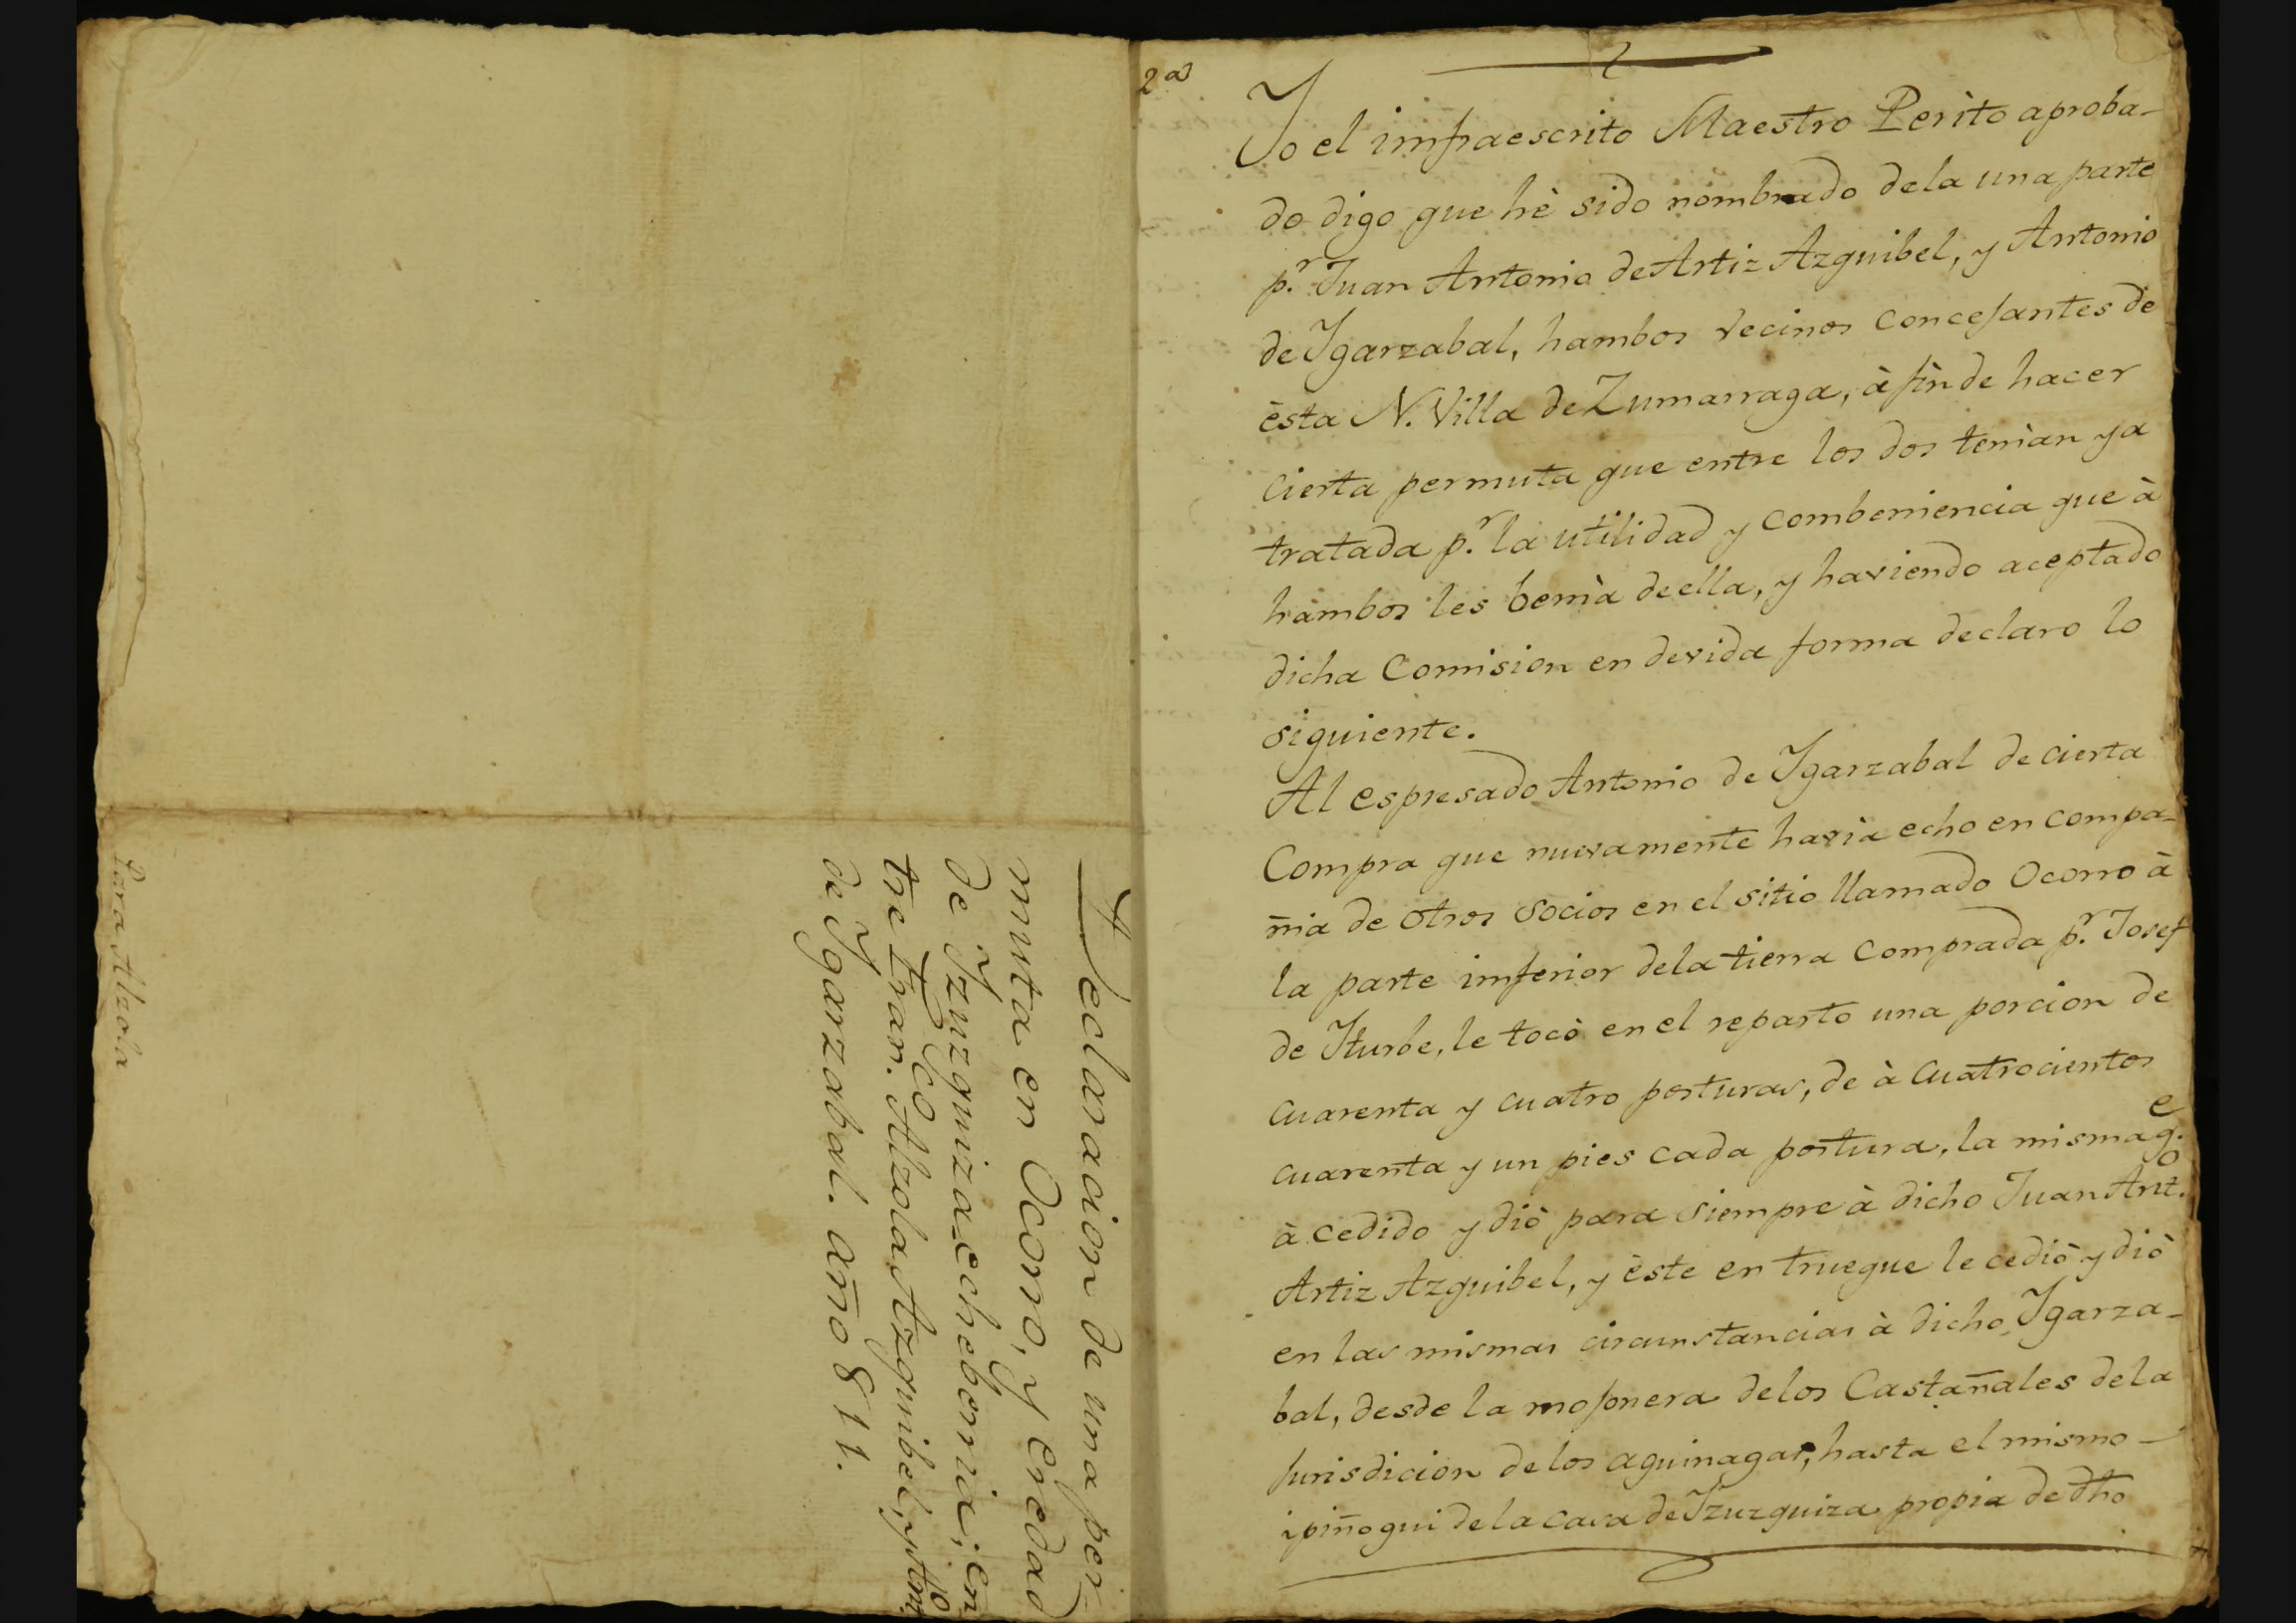 Declaracion de una per-
muta en Ocorro, y eredad
de Yzuzguiza-echeberria; en
tre Fran.co Alzola Azguibel, y Ant.o
de Ygarzabal. año 811.
Para Alzola
2a
Yo el imfraescrito Maestro Perìto aproba-
do digo que hè sido nombrado dela una parte
p.r Juan Antonio de Artiz Azguibel, y Antonio
de Ygarzabal, hambos vecinos concejantes de
èsta N. Villa de Zumarraga, à fìn de hacer
cierta permuta que entre los dos tenìan ya
tratada p.r la utilidad y combeniencia que à
hambos les benìa de ella, y haviendo aceptado
dicha Comision en devida forma declaro lo
siguiente.
Al espresado Antonio de Ygarzabal de cierta
Compra que nuevamente havìa echo en compa-
ñia de otros socios en el sitio llamado Ocorro à
la parte imferior dela tierra comprada p.r Josef
de Yturbe, le tocò en el reparto una porcion de
cuarenta y cuatro posturas, de à cuatrocientos
cuarenta y un pies cada postura, la misma q.e
à cedido y diò para siempre à dicho Juan Ant.o
Artiz Azguibel, y èste en trueque le cediò y diò
en las mismas circunstancias à dicho Ygarza-
bal, desde la mojonera delos Castañales dela
jurisdicion de los aguinagas, hasta el mismo
ipiñogui de la casa de Yzuzguiza propia de dho